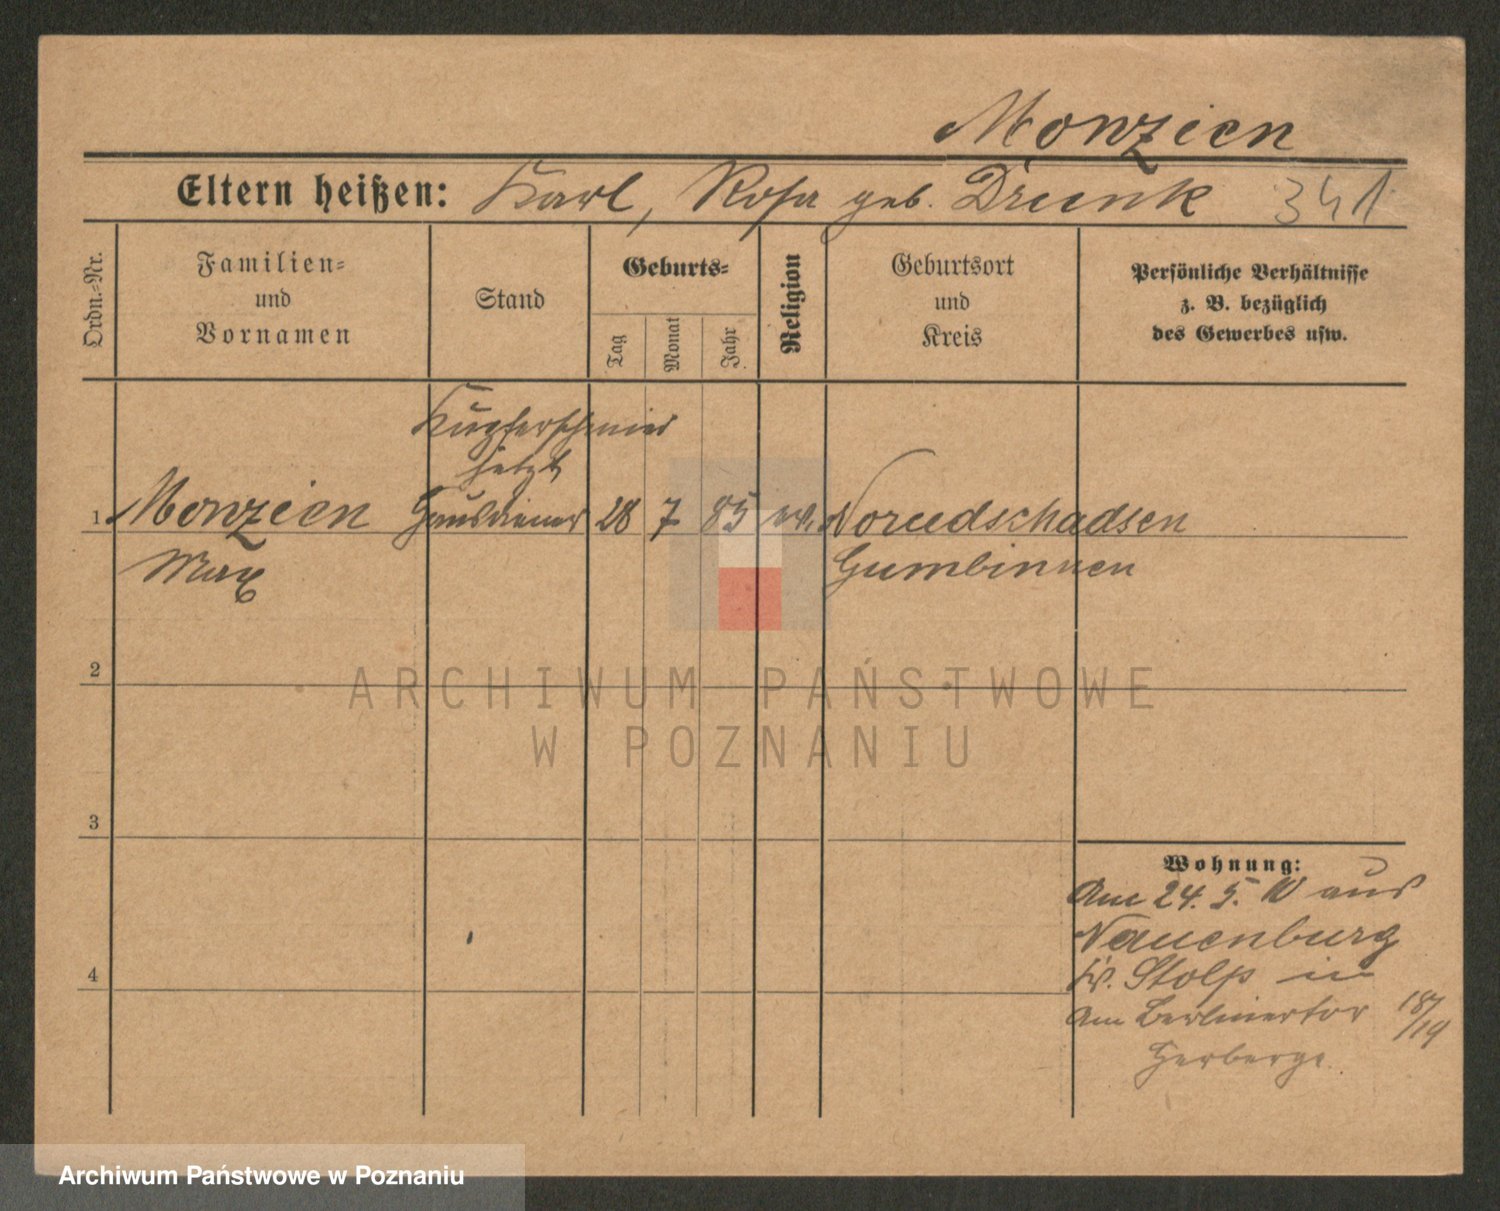 Monzien
Eltern heißen: Karl, Rosa geb. Drunk 341
Ordn.-Nr.
Familien-
und
Vornamen
Stand
Geburts-
Tag
Monat
Jahr
Religion
Geburtsort
und
Kreis
Persönliche Verhältnisse
z. B. bezüglich
des Gewerbes usw.
Kupferschmied
jetzt
1 Monzien Hausdiener 28 7 85 ev. Norudschadsen
Max Gumbinnen
2
ARCHIWUM PAŃSTWOWE
W POZNANIU
3
4
Wohnung:
Am 24. 5. 10 aus
Nauenburg
Kr. Stolp in
Am Berlinertor 18/19
Herberge.
Archiwum Państwowe w Poznaniu